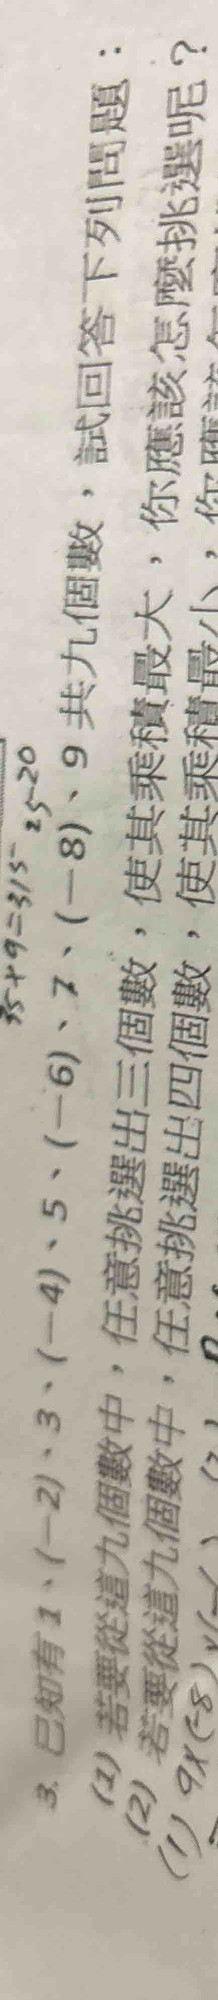 35×9=315
25-20
3. 已知有 1、(－2)、3、(－4)、5、(－6)、7、(－8)、9 共九個數，試回答下列問題：
(1) 若要從這九個數中，任意挑選出三個數，使其乘積最大，你應該怎麼挑選呢？
(2) 若要從這九個數中，任意挑選出四個數，使其乘積最小，你應該怎
(1) 9×(-8)×(-